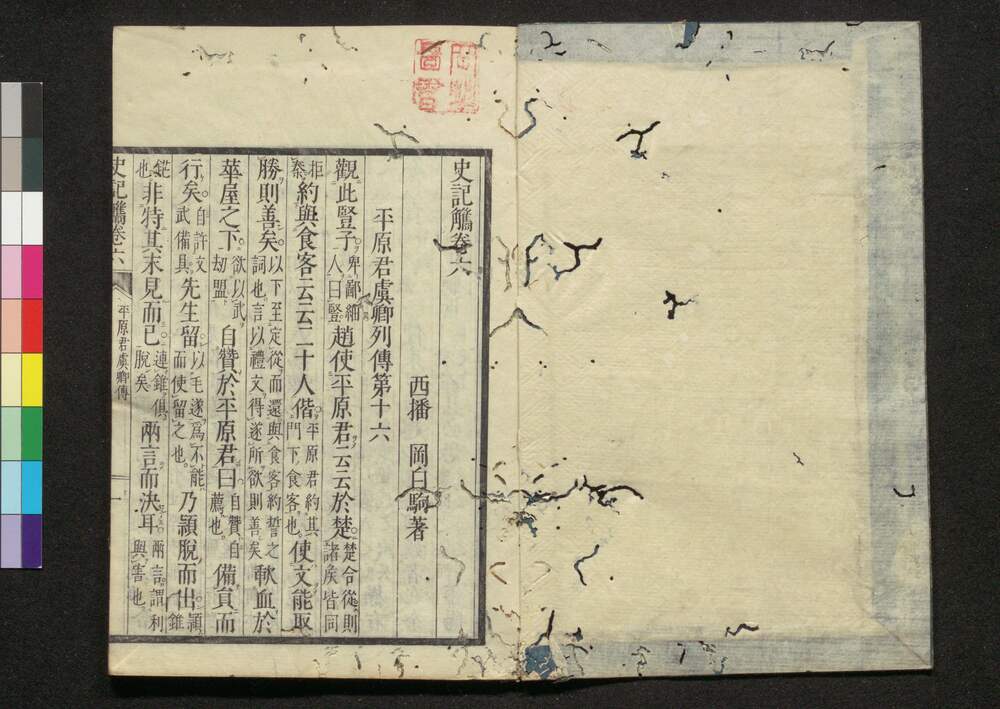 史記觿卷六
西播 岡白駒著
平原君虞卿列傳第十六
觀此豎子卑鄙細人曰豎趙使平原君云云於楚楚合從則諸矦皆同
拒秦約與食客云云二十人偕平原君約其門下食客也使文能取
勝則善矣以下至定從而還與食客約誓之詞也言以禮文得遂所欲則善矣歃血於
華屋之下欲以武劫盟自贊於平原君曰自贊自薦也備員而
行矣自許文武備具先生留以毛遂爲不能而使留之也乃穎脫而出穎錐
鋩也非特其末見而已連錐俱脫矣兩言而決耳兩言謂利與害也
史記觿卷六
平原君虞卿傳
一